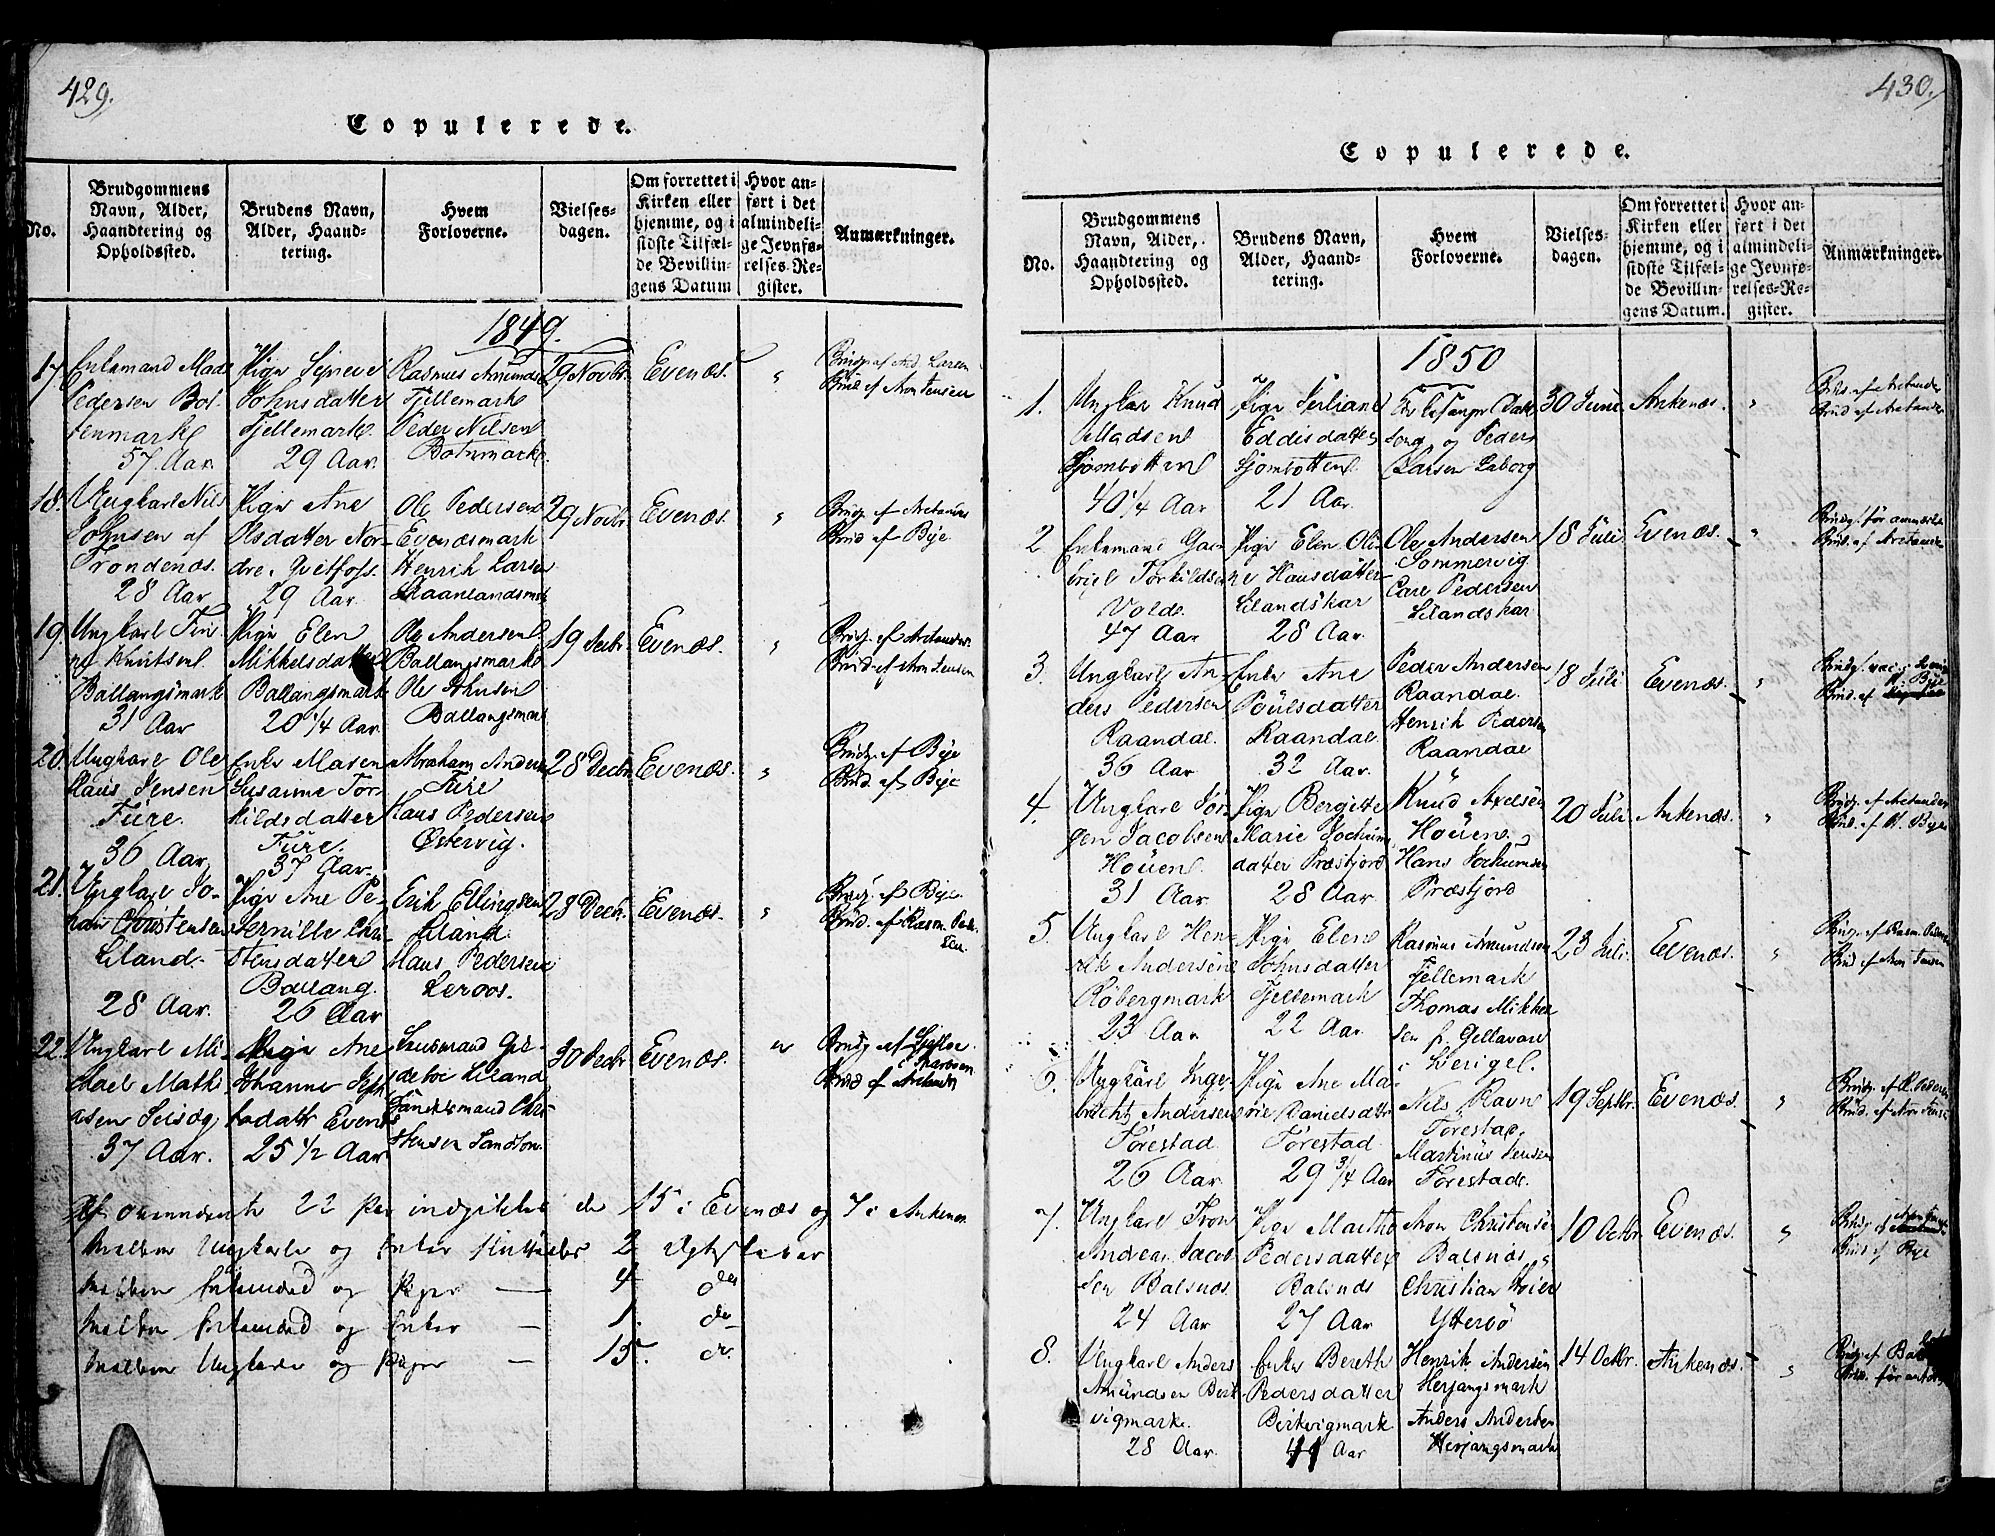 429.
Copulerede.
No.
Brudgommens
Navn, Alder,
Haandtering og
Opholdssted.
Brudens Navn,
Alder, Haand-
tering.
Hvem
Forloverne.
Vielses-
dagen.
Om forrettet i
Kirken eller
hjemme, og i
sidste Tilfæl-
de Bevillin-
gens Datum
Hvor an-
ført i det
almindeli-
ge Jevnfø-
relses-Re-
gister.
Anmærkninger.
1849.
17
Enkemand Mads
Pedersen Bot-
tenmark
57 Aar
Pige
Johnsdatter
Fjellemark.
29 Aar.
Rasmus Amunds
Fjellemark
Peder Nilsen
Botnmark
29 Novbr
Evenæs.
"
Brudg. af And. Larsen
Brud af Aron Jensen
18.
Ungkarl Nils
Johnsen af
Trondenæs.
28 Aar
Pige Ane
Olsdatter Nor-
dre Qvitfoss.
29 Aar.
Ole Pedersen
Evenæsmark
Henrik Larsen
Skaanlandsmk
29 Novbr
Evenæs.
"
Brudg. af Arctander
Brud af Bye
19.
Ungkarl
Knutsen
Ballangsmark
31 Aar
Pige Elen
Mikkelsdatter
Ballangsmark
20 1/4 Aar
Ole Andersen
Ballangsmark
Ole Johnsen
Ballangsmark
19 Decbr
Evenæs.
"
Brudg. af Arctander.
Brud af Aron Jensen
20.
Ungkarl Ole
Hans Jensen
Fure.
36 Aar.
Enke Maren
Susanne Tor
kildsdatter
Fure.
37 Aar.
Abraham Anders
Fure
Hans Pedersen
Østervig.
28 Decbr
Evenæs.
"
Brudg. af Bye
Brud af Bye
21.
Ungkarl Jo-
han Christensen
Liland.
28 Aar.
Pige Ane Pe-
ternille
stensdatter
Ballang.
26 Aar
Erik Ellingsen
Liland.
Hans Pedersen
Leroos.
28 Decbr.
Evenæs.
"
Brudg. af Bye
Brud. af Rasm. Peder-
sen.
22.
Ungkarl Mi-
chael Mathi
asen
37 Aar.
Pige Ane
Johanne
datt Evenæs
25 1/2 Aar
Lensmand
Liland
Handelsmand Chri-
stensen Sandton
30 Decbr
Evenæs.
"
Brudg af
Brud af Arctander
22 Par 15 i Evenæs og 7 i Ankenæs
Mellem Ungkarle og Enker 2 Ægteskaber
Mellem Enkemænd og Piger — 4 do
Mellem Enkemænd og Enker — 1. do
Mellem Ungkarle og Piger — 15. do
430.
Copulerede.
No.
Brudgommens
Navn, Alder,
Haandtering og
Opholdssted.
Brudens Navn,
Alder, Haand-
tering.
Hvem
Forloverne.
Vielses-
dagen.
Om forrettet i
Kirken eller
hjemme, og i
sidste Tilfæl-
de Bevillin-
gens Datum.
Hvor an-
ført i det
almindeli-
ge Jevnfø-
relses-Re-
gister.
Anmærkninger.
1850
1.
Ungkar Knud
Madsen
Sjombotten
40 1/4 Aar
Pige
Eddisdatter
Sjombotten.
21 Aar.
og Peder
Larsen
30 Juni
Ankenæs.
"
Brud. af Arctander
Brud af Arctander
2
Enkemand Ga-
briel Torkildsen
Volde.
47 Aar
Pige Elen Oli
ne Hansdatter
Lilandskar
28 Aar.
Ole Andersen
Sommervig
Carl Pedersen
Lilandskar
18 Juli
Evenæs.
"
Brudg. før anmærket
Brud. af Arctander
3.
Ungkarl An-
ders Pedersen
Raandal.
36 Aar
Enke Ane
Poulsdatter
Raandal
32 Aar.
Peder Andersen
Raandal.
Henrik Pedersen
Raandal
18 Juli
Evenæs.
"
Brudg. vac. i
Brud. af
4.
Ungkarl Jør-
gen Jacobsen
Houen
31 Aar
Pige Bergitte
Marie Jochum
datter Præstfjord
28 Aar.
Knud Axelsen
Houen
Hans Jochumsen
Præstfjord
20 Juli
Ankenæs.
"
Brudg. af Arctander
Brud. af H. Bye
5.
Ungkarl Hen-
rik Andersen
Røbergmark
23 Aar.
Pige Elen
Johnsdatter
Fjellemark
22 Aar.
Rasmus Amundsen
Fjellemark
Thomas Mikkel
sen fr. Gellavare
i Sverigel.
23 Juli.
Evenæs.
"
Brudg. af Rasm. Pedersen
Brud af Aron Jensen
6.
Ungkarl Inge-
brecht Andersen
Forestad
26 Aar
Pige Ane Ma-
rie Danielsdatr
Forestad
29 3/4 Aar
Nils Ravn
Forestad.
Martinus Jensen
Forestad.
19 Septbr.
Evenæs.
"
Brudg. af R. Pedersen
Brud. af Aron Jensen
7.
Ungkarl Tron
Andreas Jacob
sen Balsnæs.
24 Aar
Pige Marthe
Pedersdatter
Balsnæs
27 Aar
Aron Christensen
Balsnæs
Christian
Ytterø
10 Octbr
Evenæs.
"
Brudg. af
Brud af Bye
8.
Ungkarl Anders
Amundsen Berk
vigmark.
28 Aar.
Enke Bereth
Pedersdatter
Berkvigmark
41 Aar
Henrik Andersen
Herjangsmark
Anders Andersen
Herjangsmark
14 Octbr.
Ankenæs.
"
Brudg. af
Brud. før